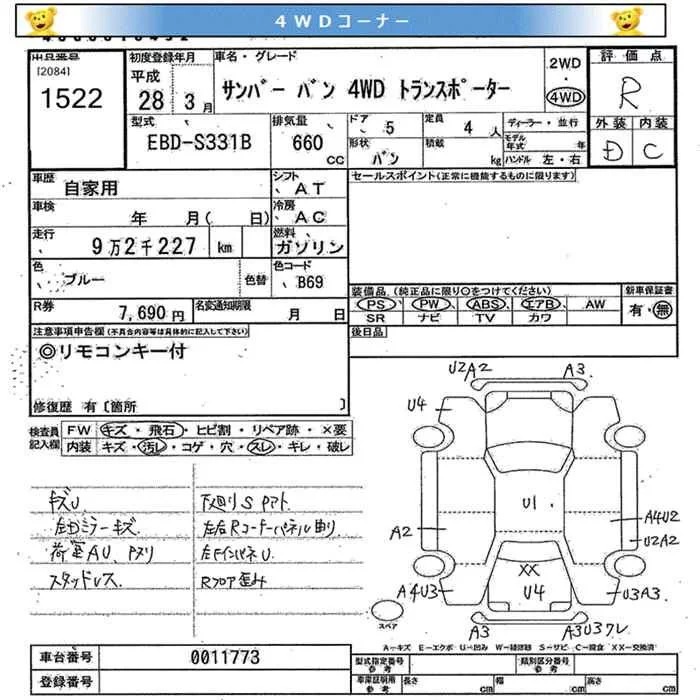 4WDコーナー
出品番号
[2084]
1522
初度登録年月
平成
28 年 3 月
車名・グレード
サンバー バン 4WD トランスポーター
2WD
・
4WD
評価点
R
外装 内装
D C
型式
EBD-S331B
排気量
660
cc
ドア 5
形状 バン
定員 4 人
積載 kg
ディーラー・並行
モデル年式 年
ハンドル 左・右
車歴
自家用
シフト
AT
車検
年 月( 日)
冷房
AC
走行
9万2千227 km
燃料
ガソリン
色
ブルー
色替
色コード
B69
R券
7,690 円
名変通知期限
月 日
セールスポイント(正常に機能するものに限ります)
装備品(純正品に限り○をつけてください)
新車保証書
PS PW ABS エアB AW
有・無
SR ナビ TV カワ
後日品
注意事項申告欄(不具合内容等は具体的に記入して下さい)
◎リモコンキー付
修復歴 有〔箇所 〕
検査員記入欄
FW キズ・飛石・ヒビ割・リペア跡・×要
内装 キズ・汚レ・コゲ・穴・スレ・キレ・破レ
キズU
左Dミラーキズ
荷室AU、Pヌリ
スタッドレス
下廻りS Pアト
左右Rコーナーパネル曲り
左FインパネU
Rフロア歪み
U2A2
A3
U4
U1
A2
A4U2
U2A2
A4U3
XX
U4
U3A3
スペア
A3
A3U3ワレ
A—キズ E—エクボ U—凹み W—補修跡 S—サビ C—腐食 XX—交換済
車台番号
0011773
登録番号
型式指定番号
参考
類別区分番号
参考
車庫証明用
参考
長さ cm 幅 cm 高さ cm